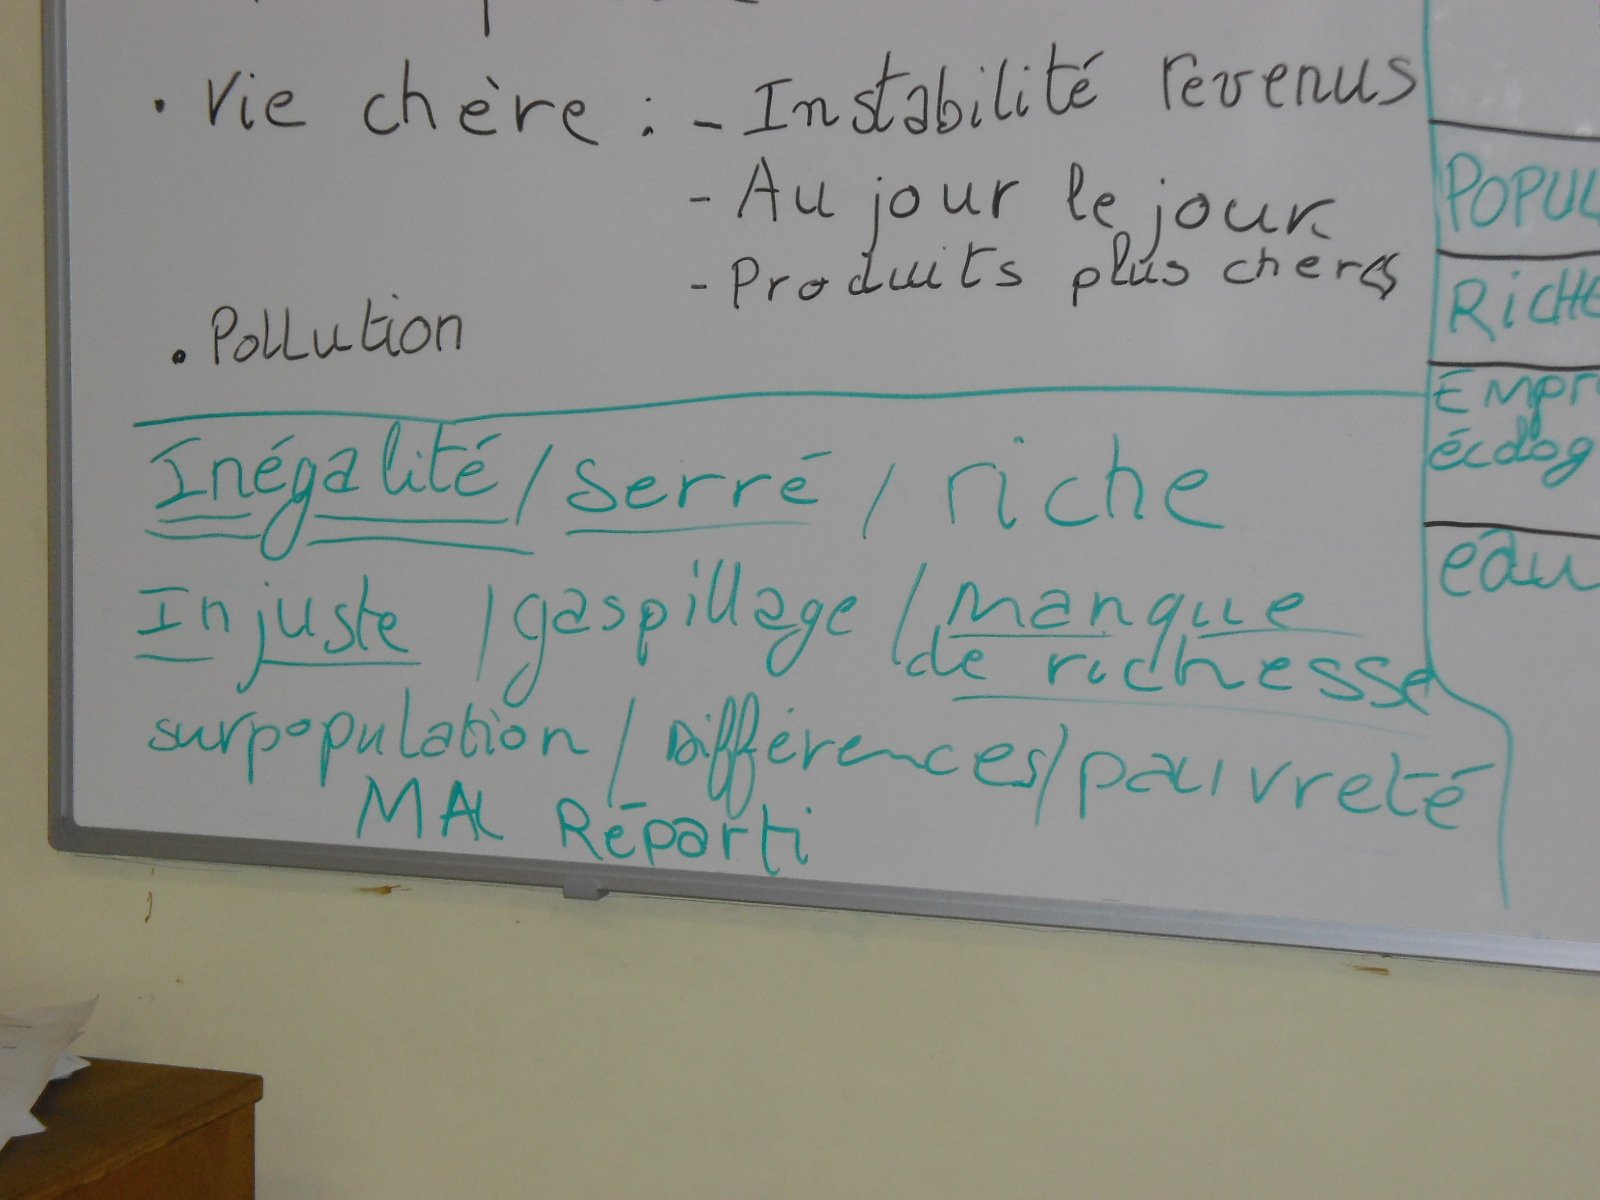 • Vie chère : - Instabilité revenus
- Au jour le jour
- Produits plus chers
• Pollution
Inégalité / serré / riche
Injuste / gaspillage / manque
de richesse
surpopulation / Différences / pauvreté
MAL Réparti
POPUL
RICHE
Empr
écolog
eau